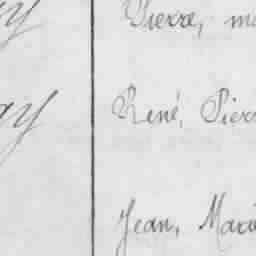 Pierre, ma
René, Pierr
Jean, Marie